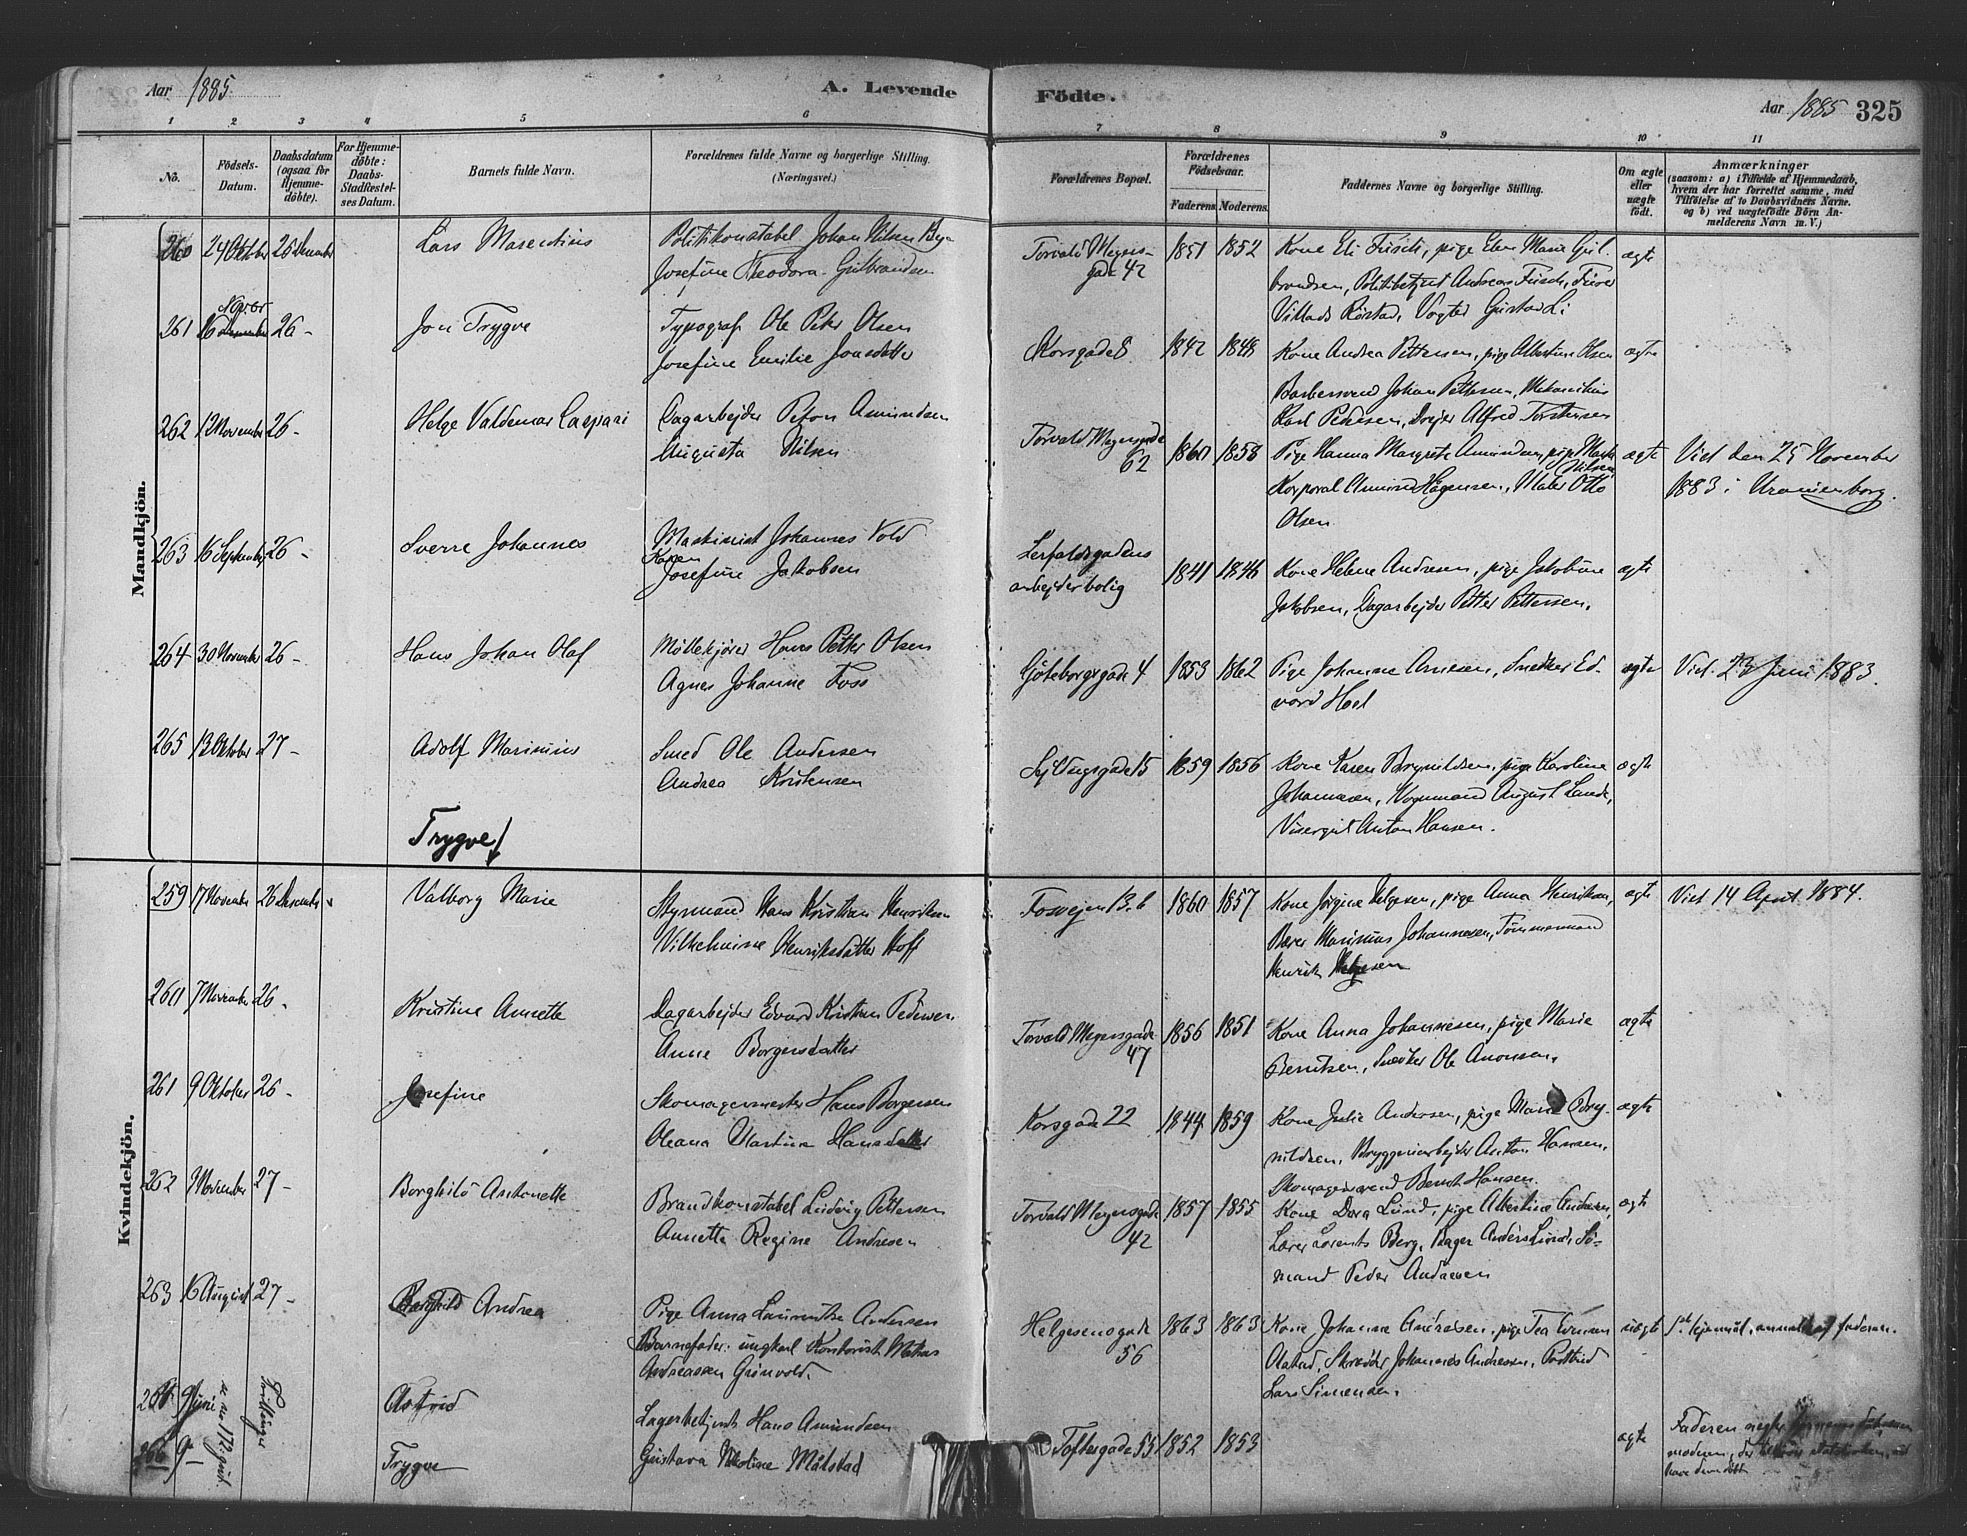 Aar 1885
A. Levende
Födte.
Aar 1885 325
1 2 3 4 5 6 7 8 9 10 11
No.
Födsels-
Datum.
Daabsdatum
(ogsaa for
Hjemme-
döbte).
For Hjemme-
döbte:
Daabs-
Stadfæstel-
ses Datum.
Barnets fulde Navn.
Forældrenes fulde Navne og borgerlige Stilling.
(Næringsvei.)
Forældrenes Bopæl.
Forældrenes
Födselsaar.
Faderens. Moderens.
Faddernes Navne og borgerlige Stilling.
Om ægte
eller
uægte
födt.
Anmærkninger
(saasom: a) i Tilfælde af Hjemmedaab,
hvem der har forrettet samme, med
Tilföielse af to Daabsvidners Navne,
og b) ved uægtefödte Börn An-
melderens Navn m. V.)
Mandkjön.
260 24 Oktober 26 December Lars Marentius Politikonstabel Johan Nilsen Bye
Josefine Theodora Gulbrandsen
Torvald Meyers-
gade 42 1851 1852 Kone Eli Fusch, pige Elen Marie Gul-
brandsen, Politibetjent Andreas Fusch,
Villads Röstad, Vogter Gustav Li ægte
261 16 Novbr 26 - Jon Trygve Typograf Ole Peter Olsen
Josefine Emilie Jonsdatter
Korsgade 8 1842 1848 Kone Andrea Pettersen, pige Albertine Olsen ægte
Barbersvend Johan Pettersen, Mekanikus
Karl Pedersen, Drejer Alfred Torstensen
262 12 November 26 - Helge Valdemar Caspari Dagarbejder Peter Amundsen
Augusta Nilsen
Torvald Meyersgade
62 1860 1858 Pige Hanna Margrete Amundsen, pige
Nilsen
Korporal Amund Hagensen, Maler Otto
Olsen ægte Viet den 25 November
1883 i Uranienborg.
263 16 September 26 - Sverre Johannes Maskinist Johannes Vold
Karen
Josefine Jakobsen
Lerfaldsgadens
arbejderbolig 1841 1846 Kone Helene Andresen, pige Jakobine ægte
Jakobsen, Dagarbejder Petter Pettersen.
264 30 November 26 - Hans Johan Olaf Möllekjörer Hans Petter Olsen
Agnes Johanne Foss
Göteborggade 4 1853 1862 Pige Johanne Arnesen, Snedker Ed-
vard Hoel ægte Viet 23 Juni 1883.
265 13 Oktober 27 - Adolf Marinius Smed Ole Andersen
Andrea Kristensen
15 1859 1856 Kone Karen Brynildsen, pige Karoline ægte
Johannesen, Vognmand August Lunde,
Visergut Anton Hansen.
Trygve ↓
Kvindekjön.
259 17 November 26 December Valborg Marie Styrmand Hans Kristian Henriksen
Vilhelmine Henriksdatter Hoff
Fosvejen 13 b 1860 1857 Kone Jörgine Helgesen, pige Anna Henriksen, ægte Viet 14 April 1884.
Bærer Marinius Johannesen, Tömmermand
Henrik Helgesen
260 7 November 26 - Kristine Annette Dagarbejder Edvard Kristian Pedersen
Anne Borgersdatter
Torvald Meyersgade
47 1856 1851 Kone Anna Johannesen, pige Marie ægte
Berntsen, Snedker Ole Aronsen.
261 9 Oktober 26 - Josefine Skomagermester Hans Borgersen
Oleana Martine Hansdatter
Korsgade 22 1844 1859 Kone Julie Andersen, pige Marie Bry- ægte
nildsen, Bryggeriarbejder Anton Hansen,
Skomagersvend Bernt Hansen.
262 9 November 27 - Borghild Antonette Brandkonstabel Ludvig Pettersen
Annette Regine Andresen
Torvald Meyersgade
42 1857 1855 Kone Dora Lund, pige Albertine Andresen, ægte
Lærer Lorents Berg, Bager Anders Lund, Sö-
mand Peder Andresen
263 16 August 27 - Borghild Andrea Pige Anna Laurentse Andersen
Barnefader: ungkarl Kontorist Mathias
Andreassen Grönvold.
Helgesensgade
56 1863 1863 Kone Johanne Andresen, pige Tea Evensen uægte
Olstad, Skrædder Johannes Andresen, Postbud
Lars Simensen. 1ste lejermål, anmeldt af faderen.
264 9 Juni Astrid Lagerbetjent Hans Amundsen
266 9 - Trygve Gustava Nikoline Målstad
se no 172 gut.
Tvillinger
Toftesgade 55 1852 1853 ægte Faderen negter
moderen, der tilhörer statskirken, at
have dem döbt